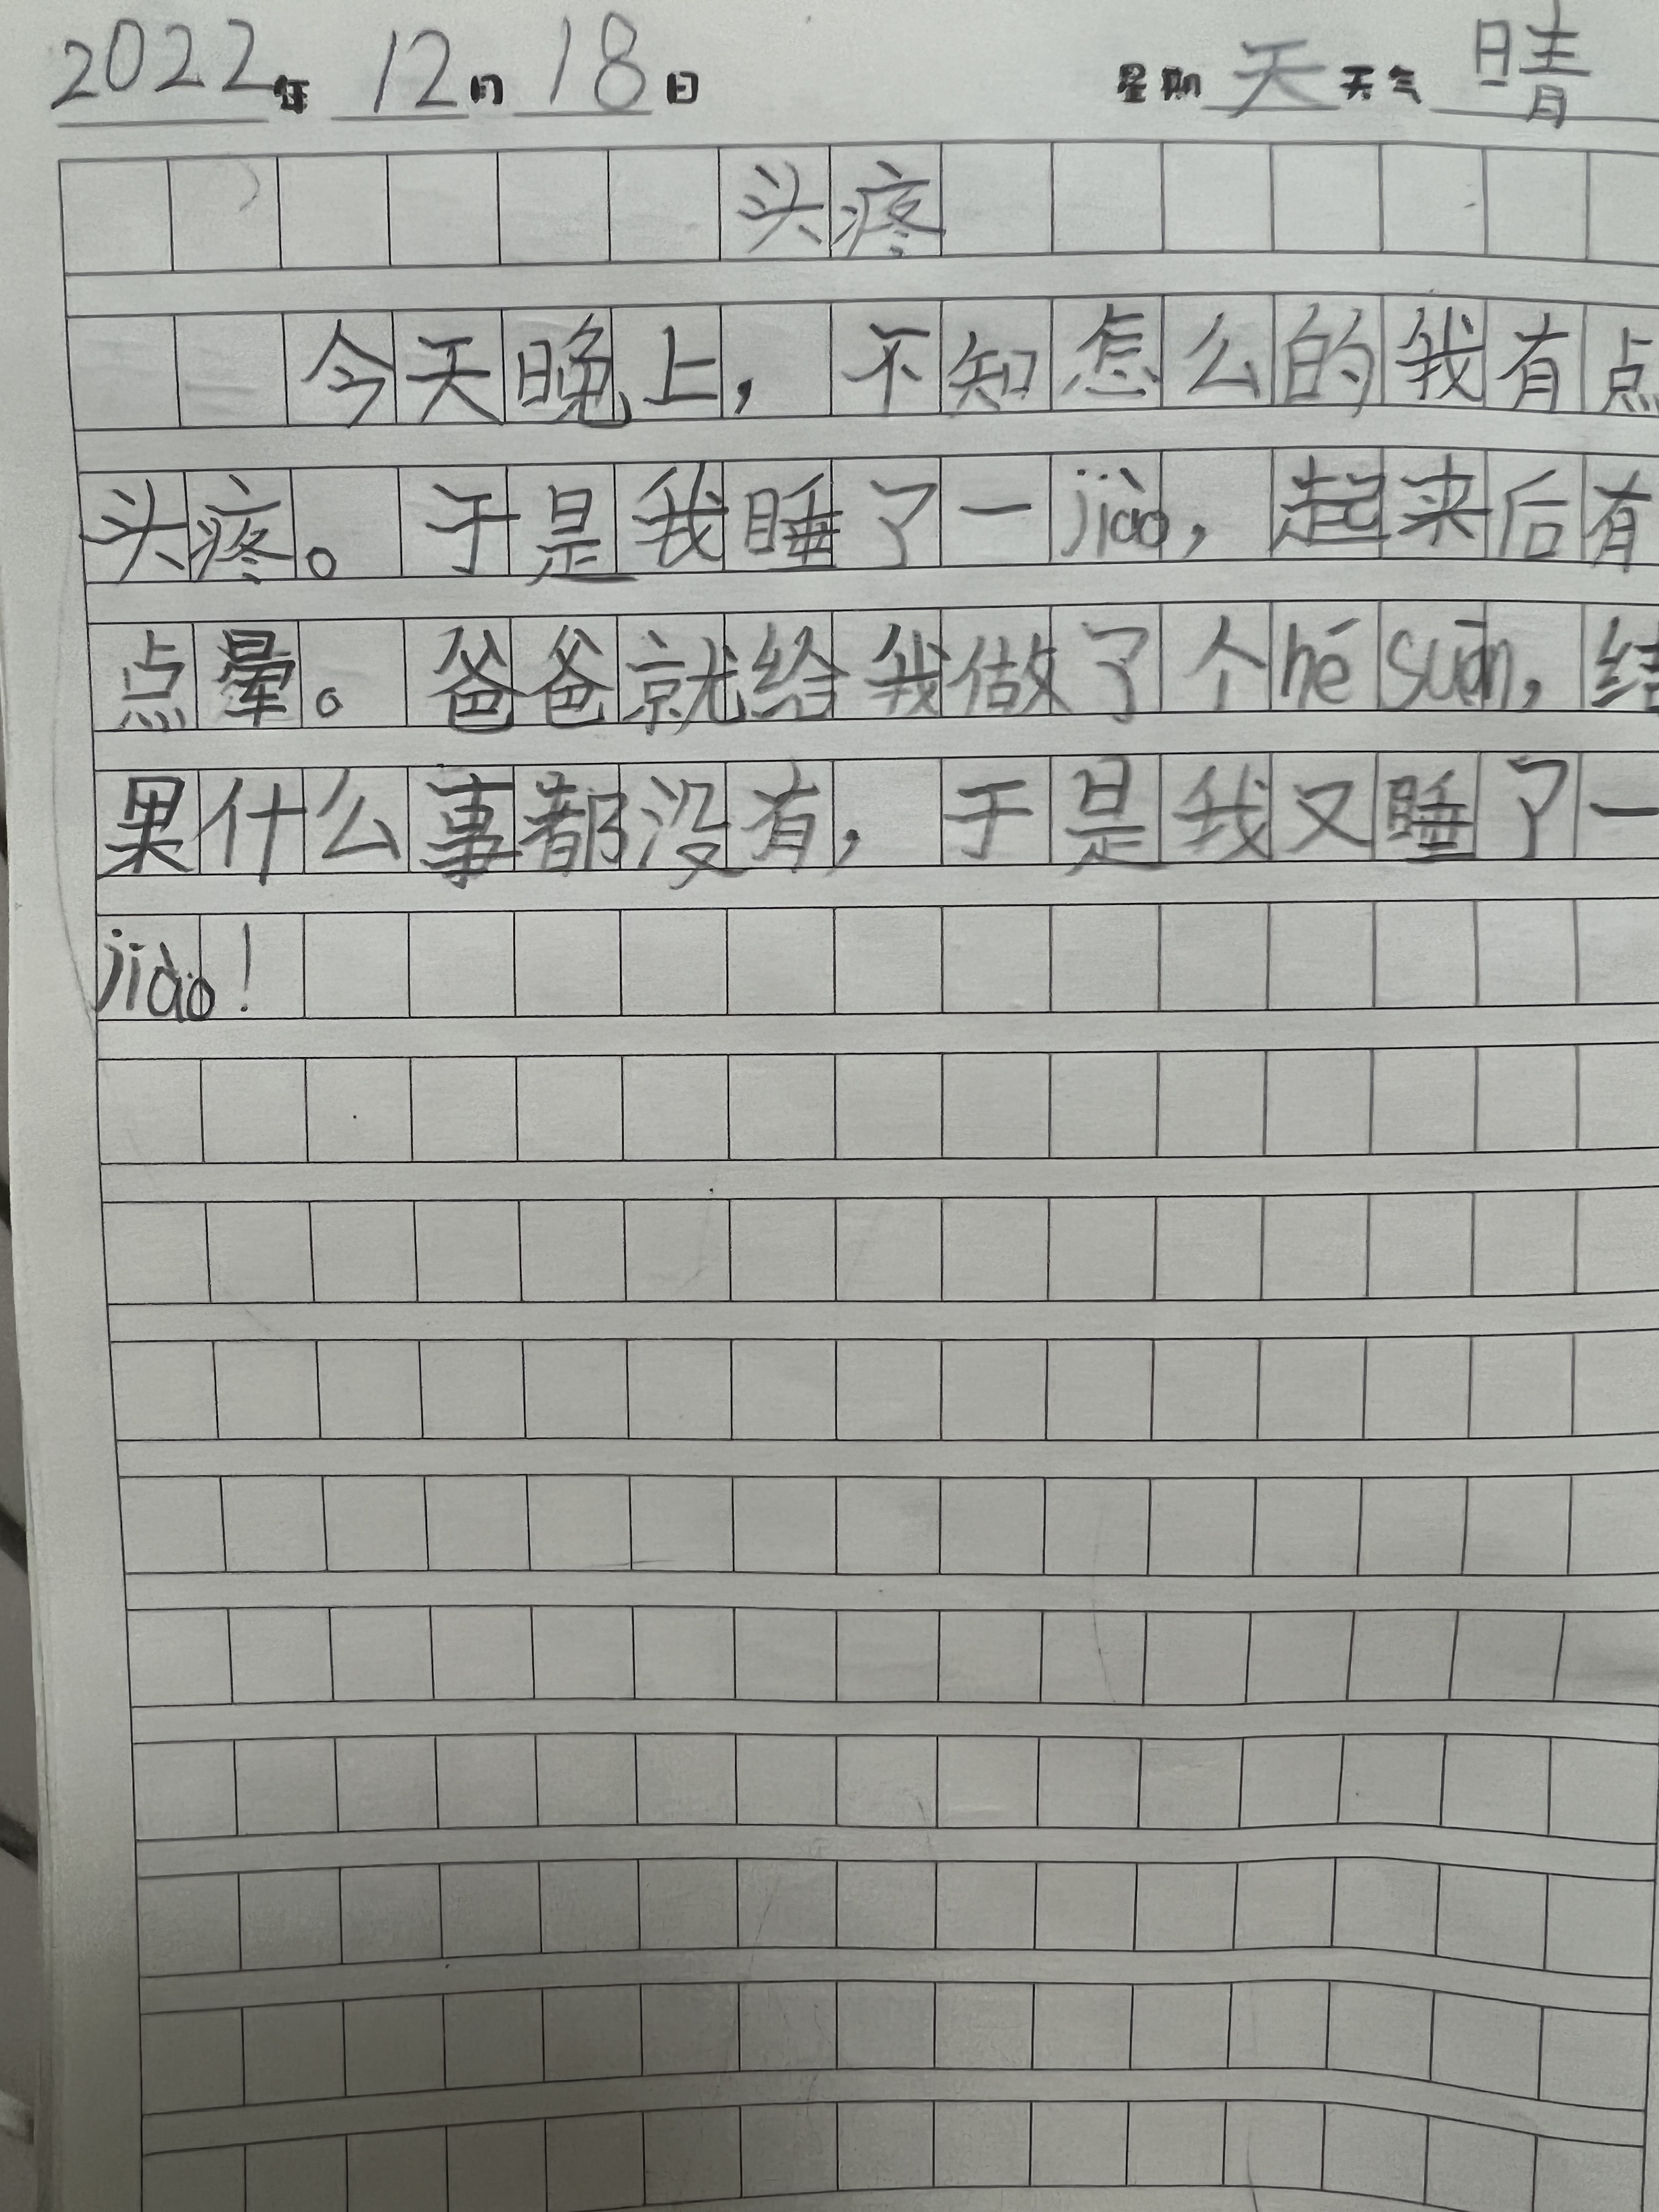 2022年 12月 18日 星期 天 天气 晴
头疼
今天晚上，不知怎么的我有点
头疼。于是我睡了一jiào，起来后有
点晕。爸爸就给我做了个hé suān，结
果什么事都没有，于是我又睡了一
jiào！